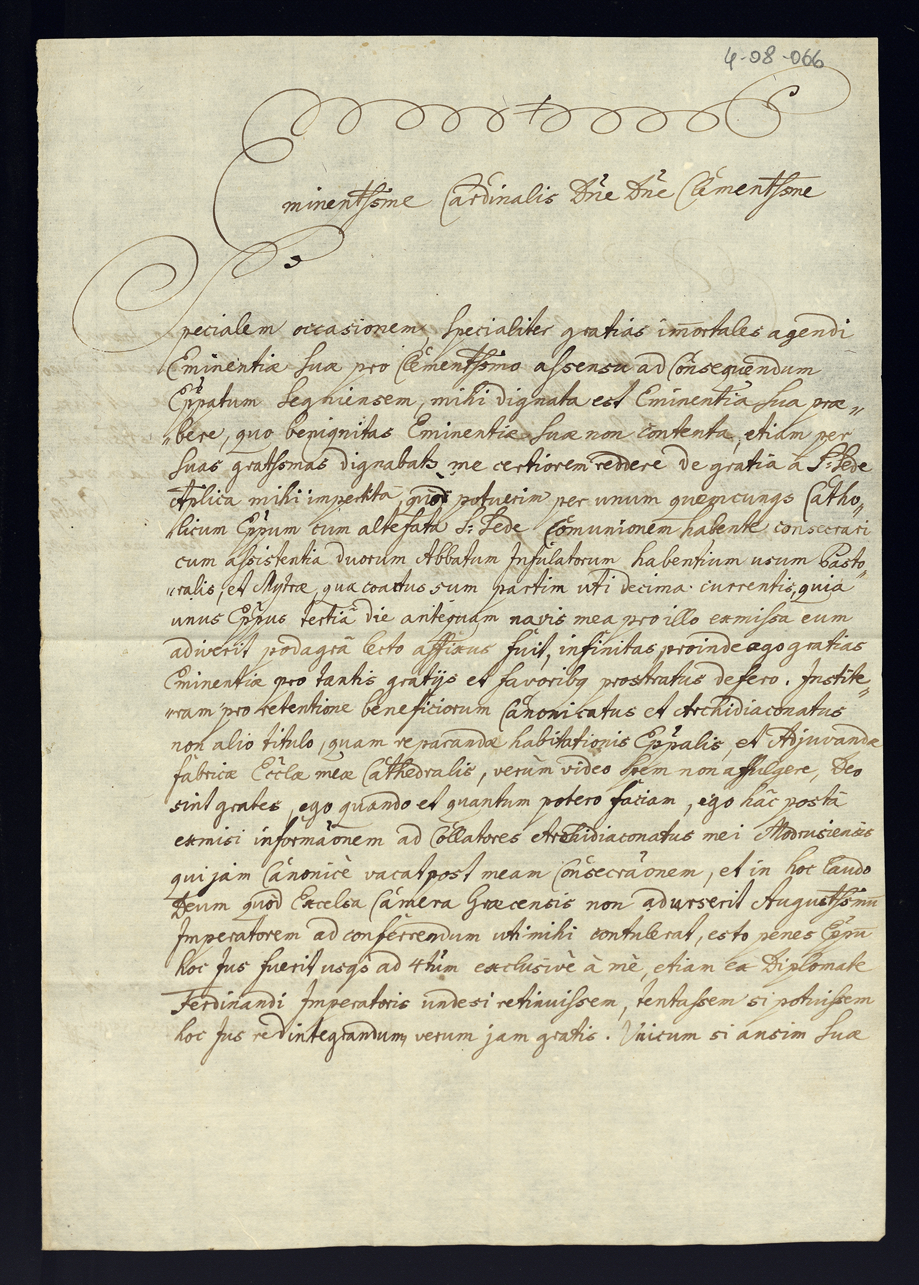 4-08-066
Eminentssme Cardinalis Dñe Dñe Clementssme
Specialem occasionem, specialiter gratias imortales agendi
Eminentiæ Suæ pro Clementssimo assensu ad Consequendum
Eppatum Segniensem, mihi dignata est Eminentia Sua præ„
„bere, quo benignitas Eminentiæ Suæ non contenta, etiam per
Suas gratssmas dignabatr me certiorem reddere de gratia à S: Sede
Aplica mihi impertita, quòd potuerim per unum quemcunqs Catho„
„licum Eppum cum altefata S: Sede Comunionem habente consecrari
cum assistentia duorum Abbatum Infulatorum habentium usum Pasto„
„ralis, et Mytræ, qua coactus sum partim uti decima currentis, quia
unus Eppus tertia die antequam navis mea pro illo exmissa eum
adiverit podagra lecto affixus fuit, infinitas proinde ago gratias
Eminentiæ pro tantis gratijs et favoribq prostratus defero. Institē„
„ram pro retentione beneficiorum Canonicatus et Archidiaconatus
non alio titulo, quam reparandæ habitationis Eppalis, et Adjuvandæ
fabricæ Ecclæ meæ Cathedralis, verùm video Spem non affulgere, Deo
sint grates, ego quando et quantum potero faciam, ego hac posta
exmisi informaonem ad Collatores Archidiaconatus mei Modrusiensis
qui jam Canonicè vacat post meam Consecraonem, et in hoc laudo
Deum quòd Excelsa Camera Græcensis non adurserit Augustssmū
Imperatorem ad conferrendum uti mihi contulerat, esto penes Eppū
hoc Jus fuerit usqs ad 4tum exclusivè à mè, etiam ex Diplomate
Ferdinandi Imperatoris unde si retinuissem, tentassem si potuissem
hoc Jus redintegrandum, verum jam gratis. Unicum si ansim Suæ